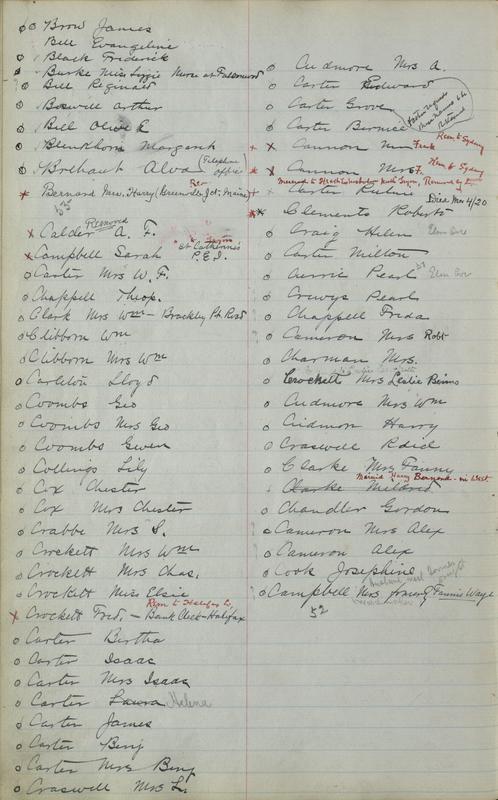 Brow James
Bell Evangeline
Black Frederick
Burke Miss Lizzie Nurse at Falconwood
Bell Reginald
Boswell Arthur
Bell Olive E
Blenkhorn Margaret
Brehaut Alva (Telephone office)
Rem
Bernard Mrs. Harry (Greenville Jct. Maine)
52
Removed
x Calder A. F.
x Campbell Sarah at Catherines P.E.I.
Carter Mrs W. F.
Chappell Theop.
Clark Mrs Wm - Brackley Pt Road
Clibborn Wm
Clibborn Mrs Wm
Carleton Lloyd
Coombs Geo
Coombs Mrs Geo
Coombs Gwen
Collings Lily
Cox Chester
Cox Mrs Chester
Crabbe Mrs S.
Crockett Mrs Wm
Crockett Mrs Chas.
Crockett Miss Elsie
Rem to Halifax
x Crockett Fred. - Bank Clerk - Halifax
Carter Bertha
Carter Isaac
Carter Mrs Isaac
Carter Laura Helena
Carter James
Carter Benj
Carter Mrs Benj
Craswell Mrs L.
Cudmore Mrs A.
Carter Edward
Carter Grove
Carter Bernice
Rem to Sydney
x Cannon Mr Frank
Rem to Sydney
x Cannon Mrs F.
Removed to
Carter
Died Nov 4/20
Clements Roberts
Craig Helen Elm Ave
Carter Milton
Currie Pearl Elm Ave
Crewys Pearl
Chappell Freda
Cameron Mrs Robt
Charman Mrs.
Crockett Mrs Leslie Binns
Cudmore Mrs Wm
Cudmore Harry
Craswell R
Clarke Mrs Fanny
Married Harry Bernard - in West
Clarke Mildred
Chandler Gordon
Cameron Mrs Alex
Cameron Alex
Cook Josephine
Campbell Mrs Fannie Waye
52